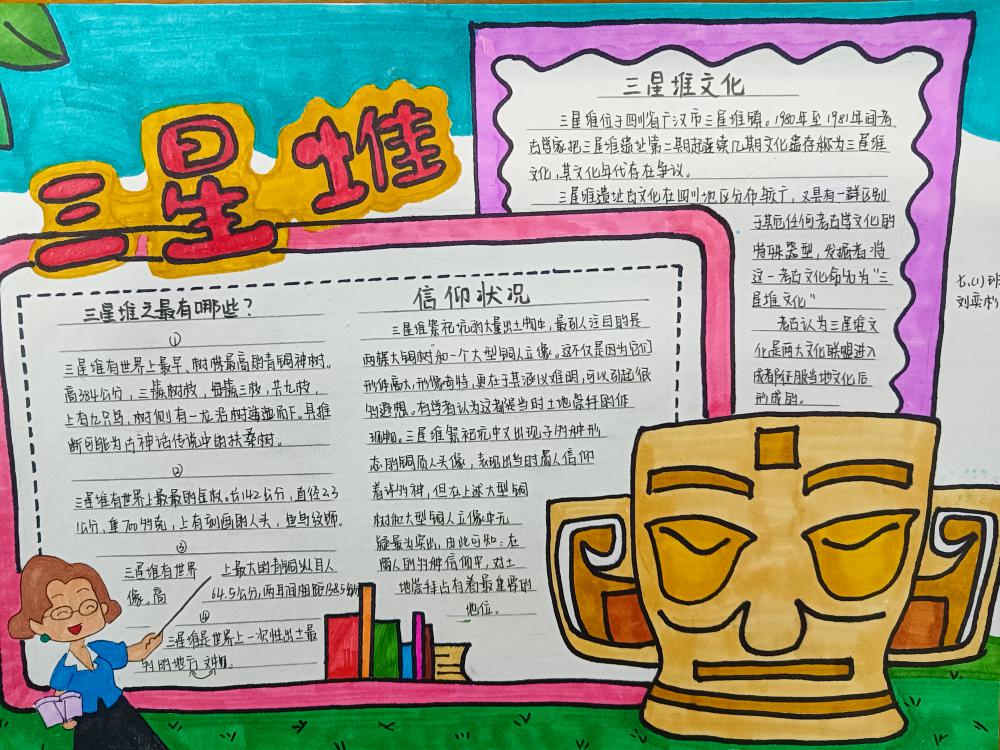 三星堆
三星堆文化
三星堆位于四川省广汉市三星堆镇。1980年至1981年间考
古学家把三星堆遗址第二期起连续几期文化遗存称为三星堆
文化,其文化年代存在争议。
三星堆遗址古文化在四川地区分布较广,又具有一群区别
于其他任何考古学文化的
特殊器型,发掘者将
这一考古文化命名为“三
星堆文化”
考古认为三星堆文
化是两大文化联盟进入
成都征服当地文化后
形成的。
七、(1)班
刘奕
三星堆之最有哪些?
①
三星堆有世界上最早,树株最高的青铜神树。
高384公分,三簇树枝,每簇三枝,共九枝,
上有九只鸟,树侧有一龙沿树逶迤而下。具推
断可能为古神话传说中的扶桑树。
②
三星堆有世界上最最的金杖。长142公分,直径2.3
公分,重700多克,上有刻画的人头,鱼鸟纹饰。
③
三星堆有世界 上最大的青铜纵目人
像。高 64.5公分,两耳间相距138.5
④
三星堆是世界上一次性出土最
的的地方文物。
信仰状况
三星堆祭祀坑的大量出土物中,最引人注目的是
两株大铜树”和一个大型铜人立像。这不仅是因为它们
形体高大,形像奇特,更在于其涵义难明,可以引起很
多的遐想。有学者认为这者是当时土地崇拜的体
现物。三星堆祭祀坑中又出现了多种形
态的铜质人头像,表现出当时蜀人信仰
着许多神,但在上述大型铜
树和大型铜人立像中无
疑最为突出,由此可知:在
蜀人的多神信仰中,对土
地崇拜占有着最重要的
地位。